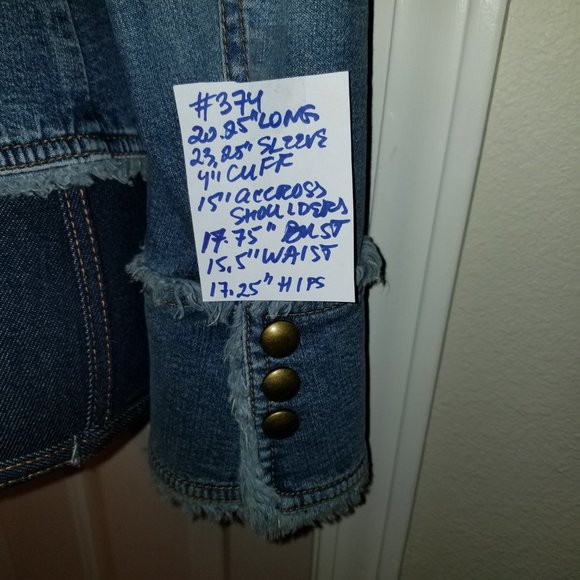 #374
20.25" LONG
23.25" SLEEVE
4" CUFF
15" ACCROSS
SHOULDERS
17.75" BUST
15.5" WAIST
17.25" HIPS